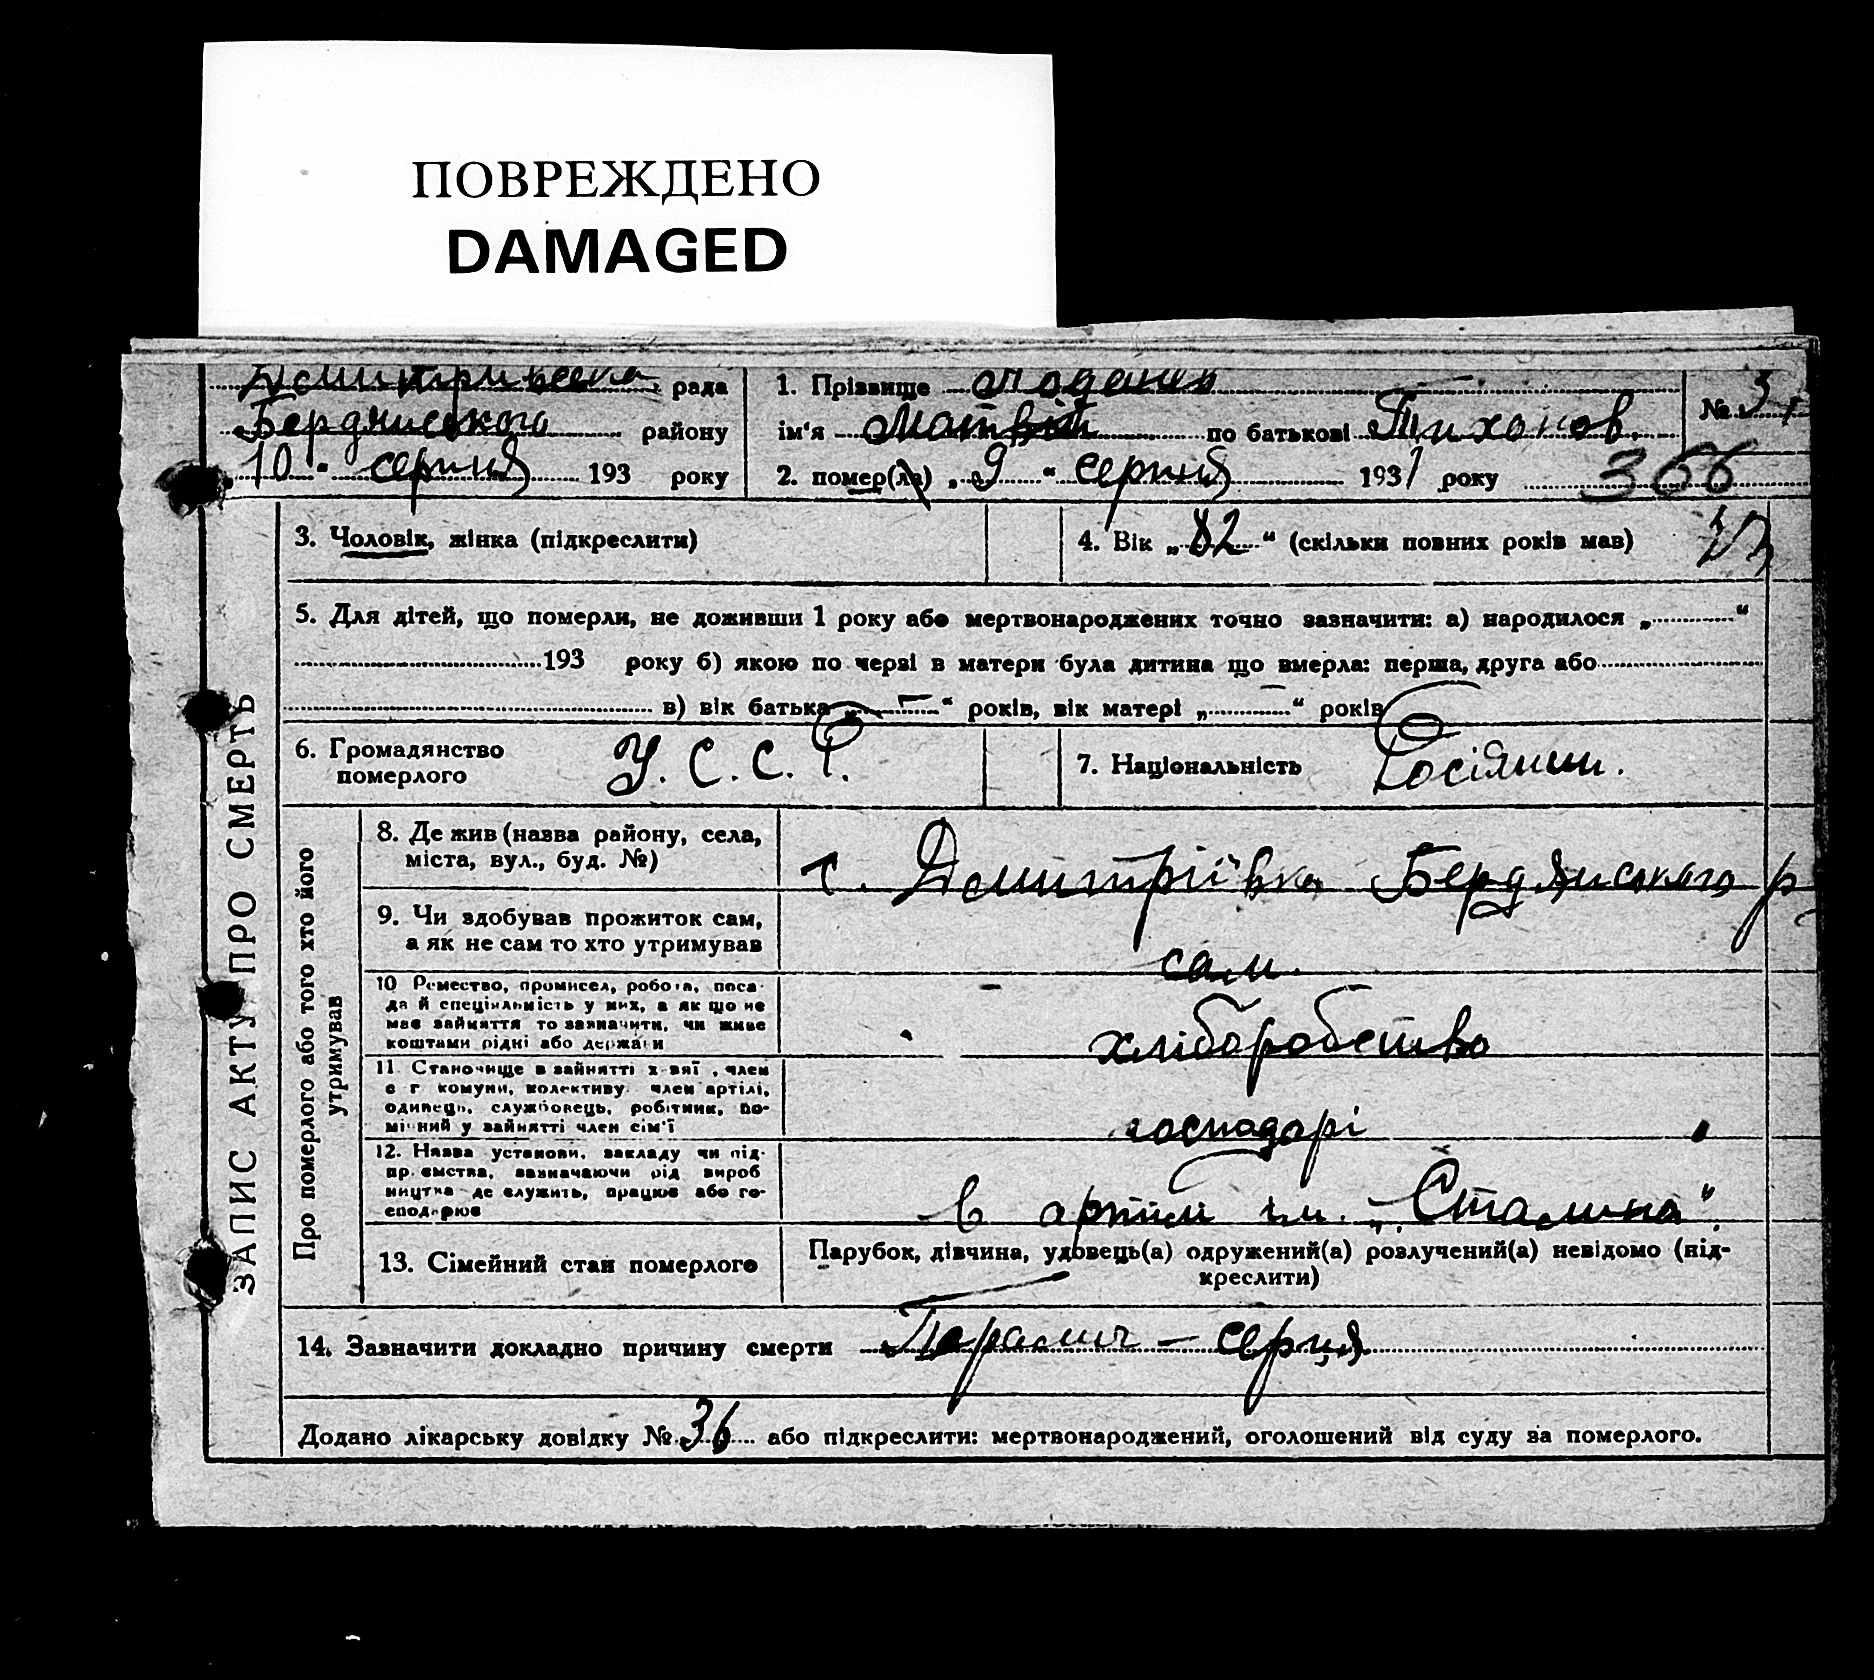 ПОВРЕЖДЕНО
DAMAGED
рада
Бердянського району
10 " серпня 193 року
1. Прізвище
ім'я Матвій по батькові Тихонов.
2. помер(ла) „ 9 " серпня 1931 року
№
366
ЗАПИС АКТУ ПРО СМЕРТЬ
3. Чоловік, жінка (підкреслити)
4. Вік „ 82 “ (скільки повних років мав)
5. Для дітей, що померли, не доживши 1 року або мертвонароджених точно зазначити: а) народилося „ “
193 року б) якою по черзі в матери була дитина що вмерла: перша, друга або
в) вік батька „ — “ років, вік матері „ — “ років
6. Громадянство
померлого
У. С. С. Р.
7. Національність Росіянин.
Про померлого або того хто його
утримував
8. Де жив (назва району, села,
міста, вул., буд. №)
с. Дмитріївка Бердянського р
9. Чи здобував прожиток сам,
а як не сам то хто утримував
сам.
10 Ремество, промисел, робота, поса-
да й спеціяльмість у них, а як що не
має зайняття то зазначити, чи живе
коштами рідні або держави
хліборобство
11. Становище в зайнятті х-вяї , член
с г комуни, колективу член артілі,
одинець, службовець, робітник, по-
мічний у зайнятті член сім'ї
господарі
12. Назва установи, закладу чи під-
пр. ємства, зазначаючи від вироб
ництва де служить, працює або го-
сподарює
в артілі ім. „Сталина".
13. Сімейний стан померлого
Парубок, дівчина, удовець(а) одружений(а) розлучений(а) невідомо (під-
креслити)
14. Зазначити докладно причину смерти Параліч — серця
Додано лікарську довідку № 36 або підкреслити: мертвонароджений, оголошений від суду за померлого.